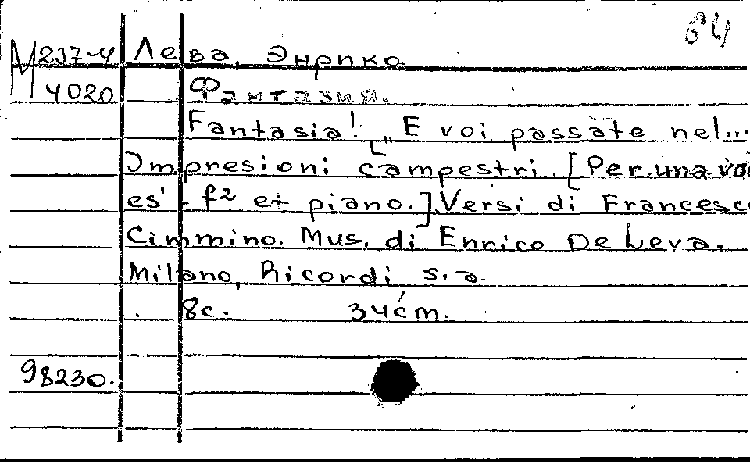 64
М 237-4 Лева, Энрико
4020 Фантазия.
Fantasia! „E voi passate nel...
Impresioni campestri. [Per una voi
es' - f² et piano.] Versi di Francesco
Cimmino. Mus. di Enrico De Leva.
Milano, Ricordi s.a.
8c. 34cm.
98230.